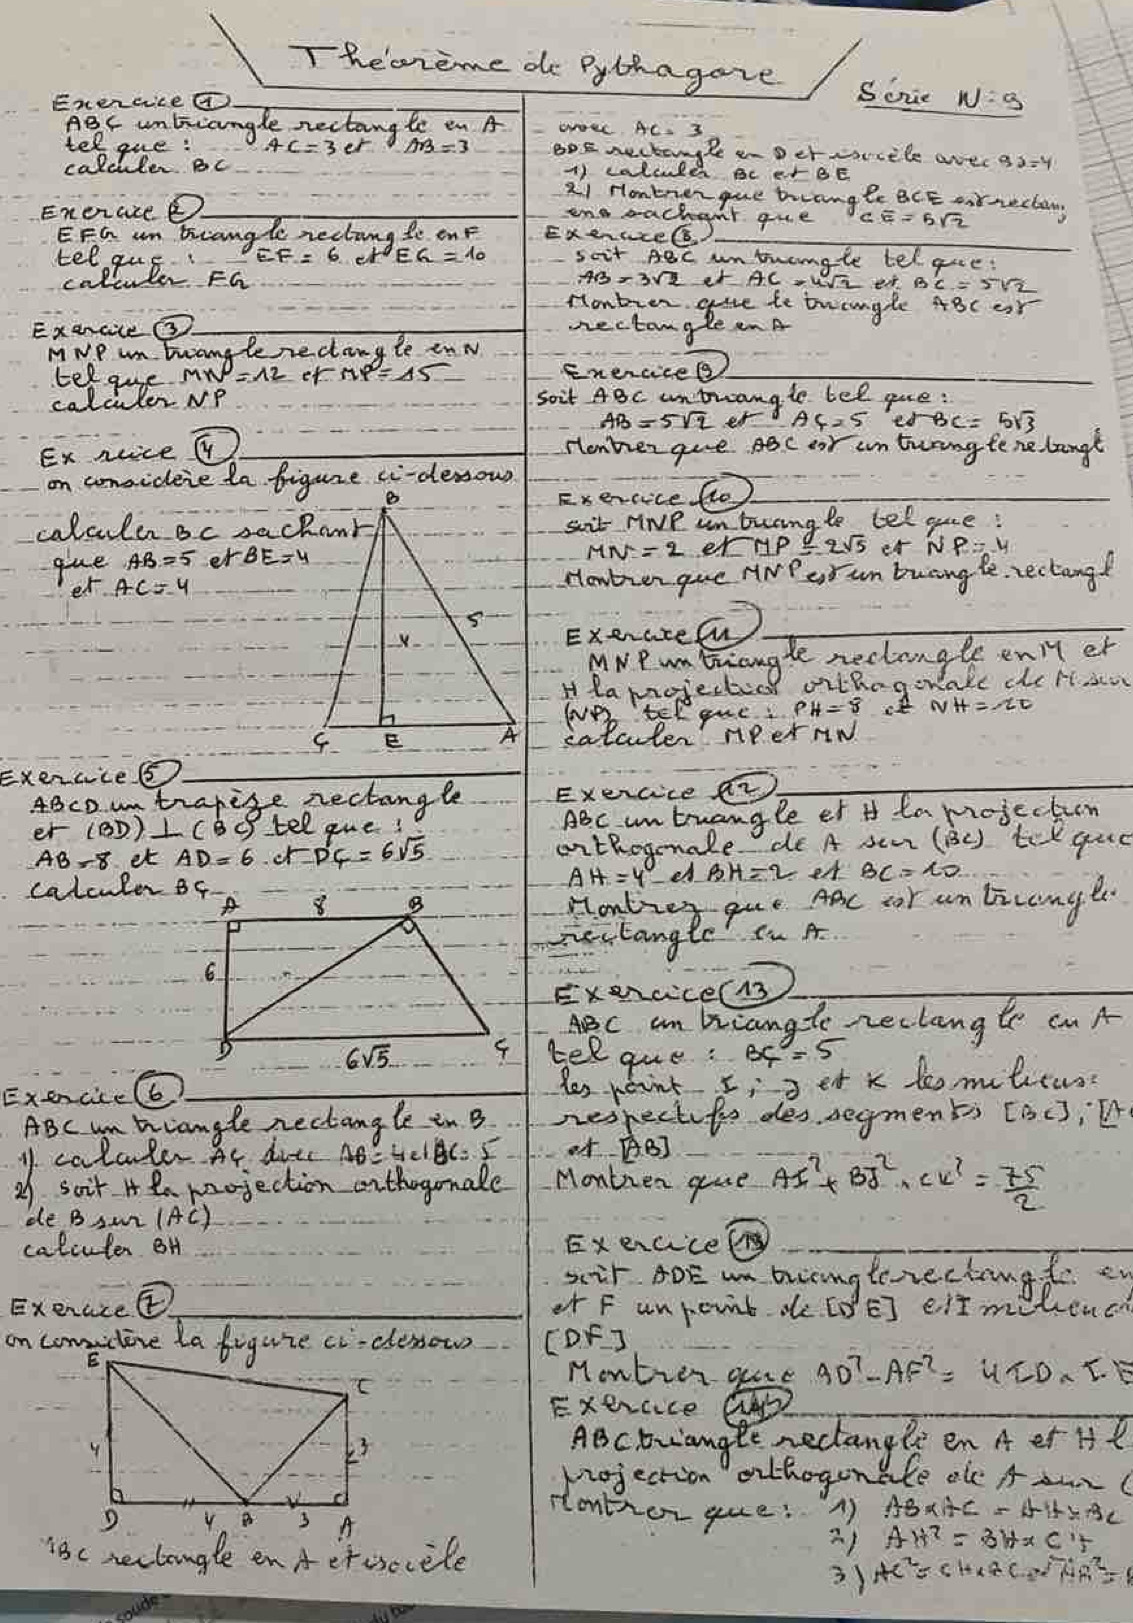 Théorème de Pythagore
Série N: 3
Exercice 1
ABC un triangle rectangle en A
tel que : AC=3 et AB=3
calculer BC
Exercice 2
EFG un triangle rectangle en F
tel que : EF=6 et EG=10
calculer FG
Exercice 3
MNP un triangle rectangle en N
tel que MN=12 et MP=15
calculer NP
Exercice 4
on considère la figure ci-dessous
calculer BC sachant
que AB=5 et BE=4
et AC=4
B
4
5
C E A
Exercice 5
ABCD un trapèze rectangle
et (BD) ⊥ (BC) tel que :
AB=8 et AD=6 et DC=6√5
calculer BC
A 8 B
6
D 6√5 C
Exercice 6
ABC un triangle rectangle en B
1) calculer AC avec AB=4 et BC=5
2) soit H la projection orthogonale
de B sur (AC)
calculer BH
Exercice 7
on considère la figure ci-dessous
E
C
4
3
D 4 B 3 A
ABC rectangle en A et isocèle
avec AC=3
BDE rectangle en D et isocèle avec BD=4
1) calculer BC et BE
2) Montrer que triangle BCE est rectang
sachant que CE=5√2
Exercice 8
soit ABC un triangle tel que :
AB=3√2 et AC=4√2 et BC=5√2
Montrer que le triangle ABC est
rectangle en A
Exercice 9
soit ABC un triangle tel que :
AB=5√2 et AC=5 et BC=5√3
Montrer que ABC est un triangle rectangl
Exercice 10
soit MNP un triangle tel que :
MN=2 et MP=2√5 et NP=4
Montrer que MNP est un triangle rectangl
Exercice 11
MNP un triangle rectangle en M et
H la projection orthogonale de M sur
(NP) tel que : PH=8 et NH=10
calculer MP et MN
Exercice 12
ABC un triangle et H la projection
orthogonale de A sur (BC) tel que
AH=4 et BH=2 et BC=10
Montrer que ABC est un triangle
rectangle en A
Exercice 13
ABC un triangle rectangle en A
tel que : BC=5
les point I, J et K les milieus
respectifs des segments [BC], [A
et [AB]
Montrer que AI² + BJ² + CK² = 75/2
Exercice
soit ADE un triangle rectangle en
et F un point de [DE] et I milieu d
[DF]
Montrer que AD² - AF² = 4ID × IE
Exercice
ABC triangle rectangle en A et H l
projection orthogonale de A sur (
Montrer que : 1) AB×AC = AH×BC
2) AH² = BH×CH
3) AC² = CH×BC et AB² =